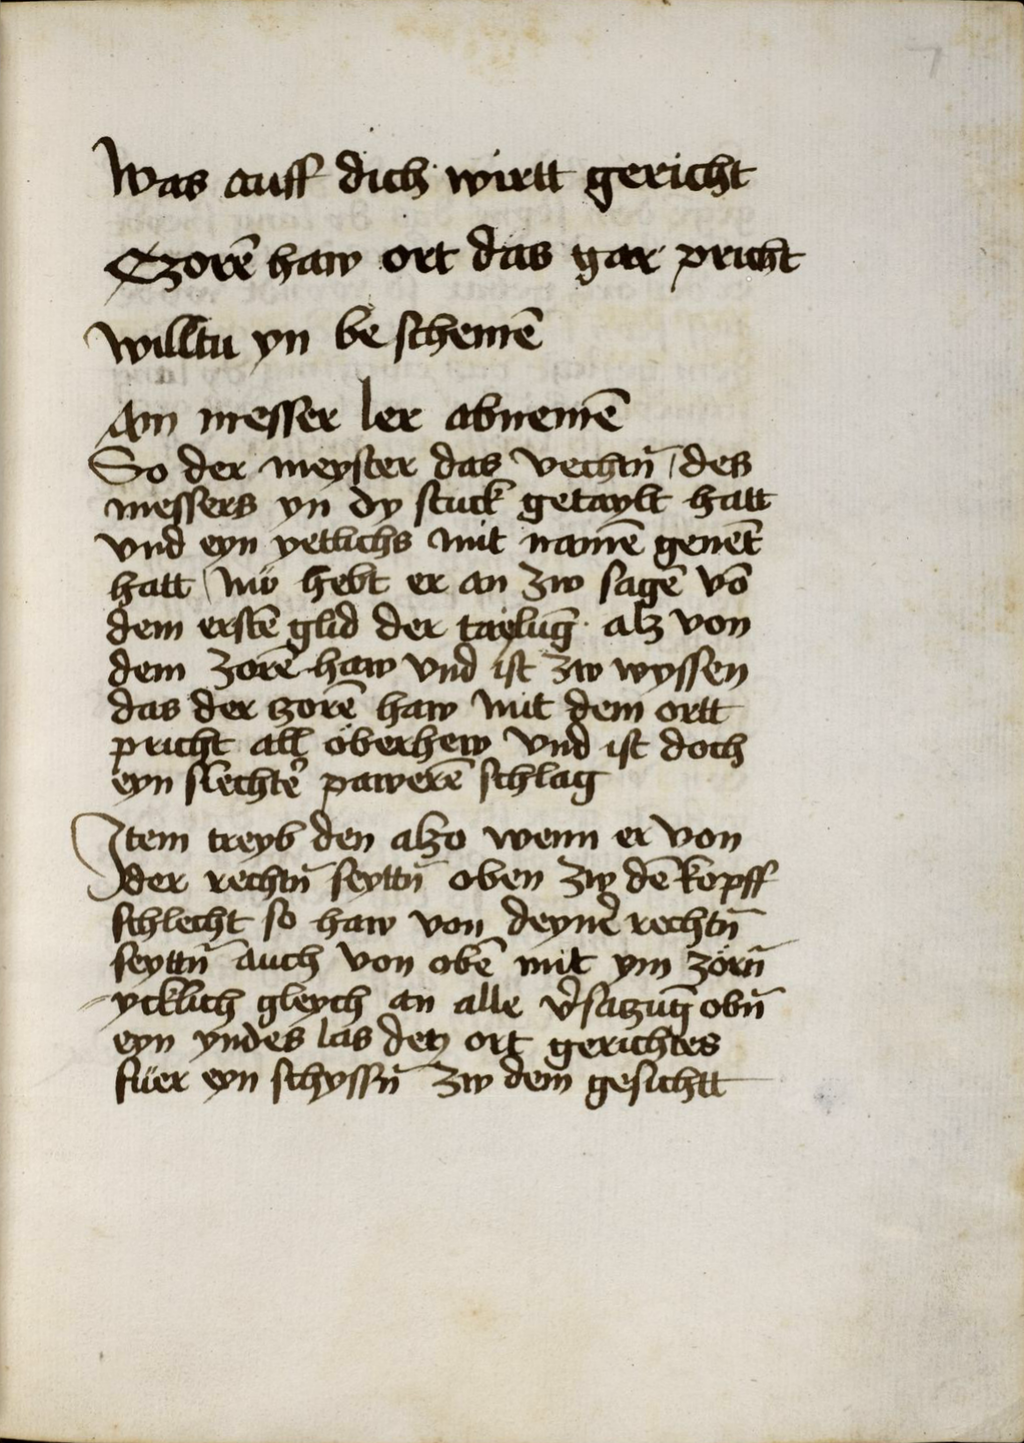 7
Was auff dich wirtt gericht
Czorē haw ort das gar pricht
willtu yn be schemē
An messer ler abnemē
So der meyster das vechtn̄ / des
messers yn dy stuck getaylt hatt
vnd eyn yetlichs mit namē genēt
hatt / Nw̄ hebt er an zw sagē vō
dem erstē glid der taylūg alz von
dem zorē haw vnd ist zw wyssen
das der zorē haw mit dem ortt
pricht all öberhew vnd ist doch
eyn slechter pawerē schlag
Item treyb den alzo wenn er von
der rechtn̄ seyttn̄ oben zw dē kopff
schlecht so haw von deynē rechtn̄
seyttn̄ auch von obē mit ym zörn̄
ycklich gleych an alle v̉satzūg obn̄
eyn yndes las den ort gerichtes
füer eyn schyssn̄ zw dem gesichtt